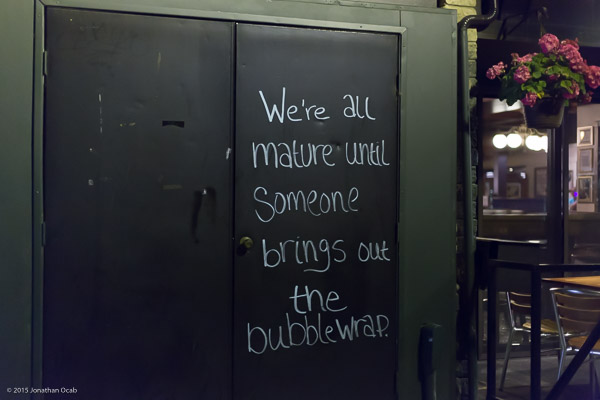 We're all
mature until
Someone
brings out
the
bubblewrap.
© 2015 Jonathan Ocab